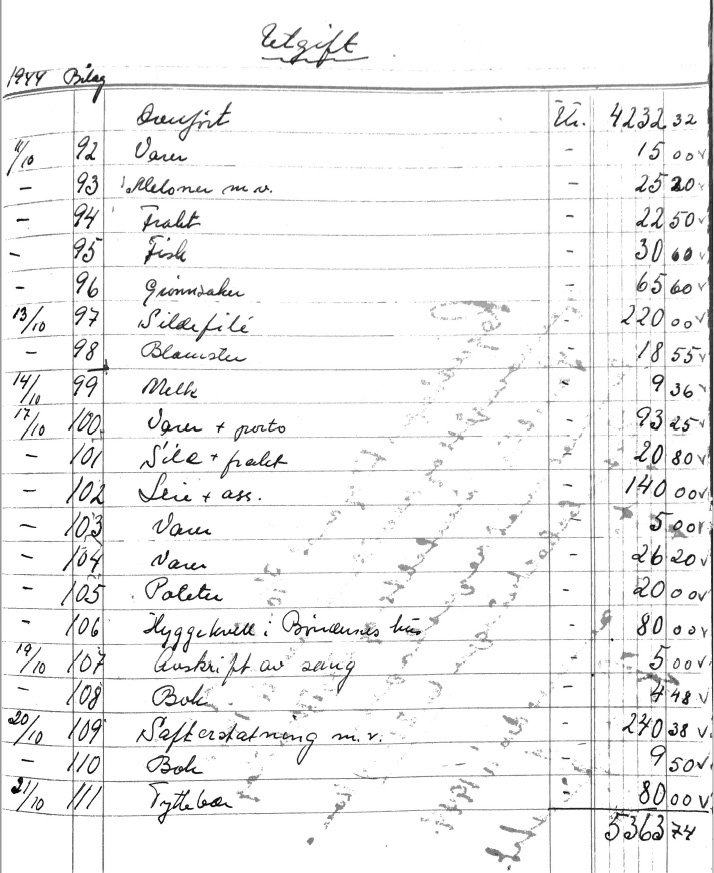 Utgift
1944 Bilag
Overført Kr. 4232 32
11/10 92 Varer - 15 00 v
- 93 Meloner m.v. - 25 20 v
- 94 Frakt - 22 50 v
- 95 Fisk - 30 60 v
- 96 Grønnsaker - 65 60 v
13/10 97 Sildefilé - 220 00 v
- 98 Blomster - 18 55 v
14/10 99 Melk - 9 36 v
17/10 100 Varer + porto - 93 25 v
- 101 Sild + frakt - 20 80 v
- 102 Leie + ass. - 140 00 v
- 103 Varer - 5 00 v
- 104 Varer - 26 20 v
- 105 Poteter - 20 00 v
- 106 Hyggekveld i Bøndernes hus - 80 00 v
19/10 107 Avskrift av sang - 5 00 v
- 108 Bok - 4 48 v
20/10 109 Safterstatning m.v. - 240 38 v
- 110 Bok - 9 50 v
21/10 111 Tyttebær - 80 00 v
5363 74